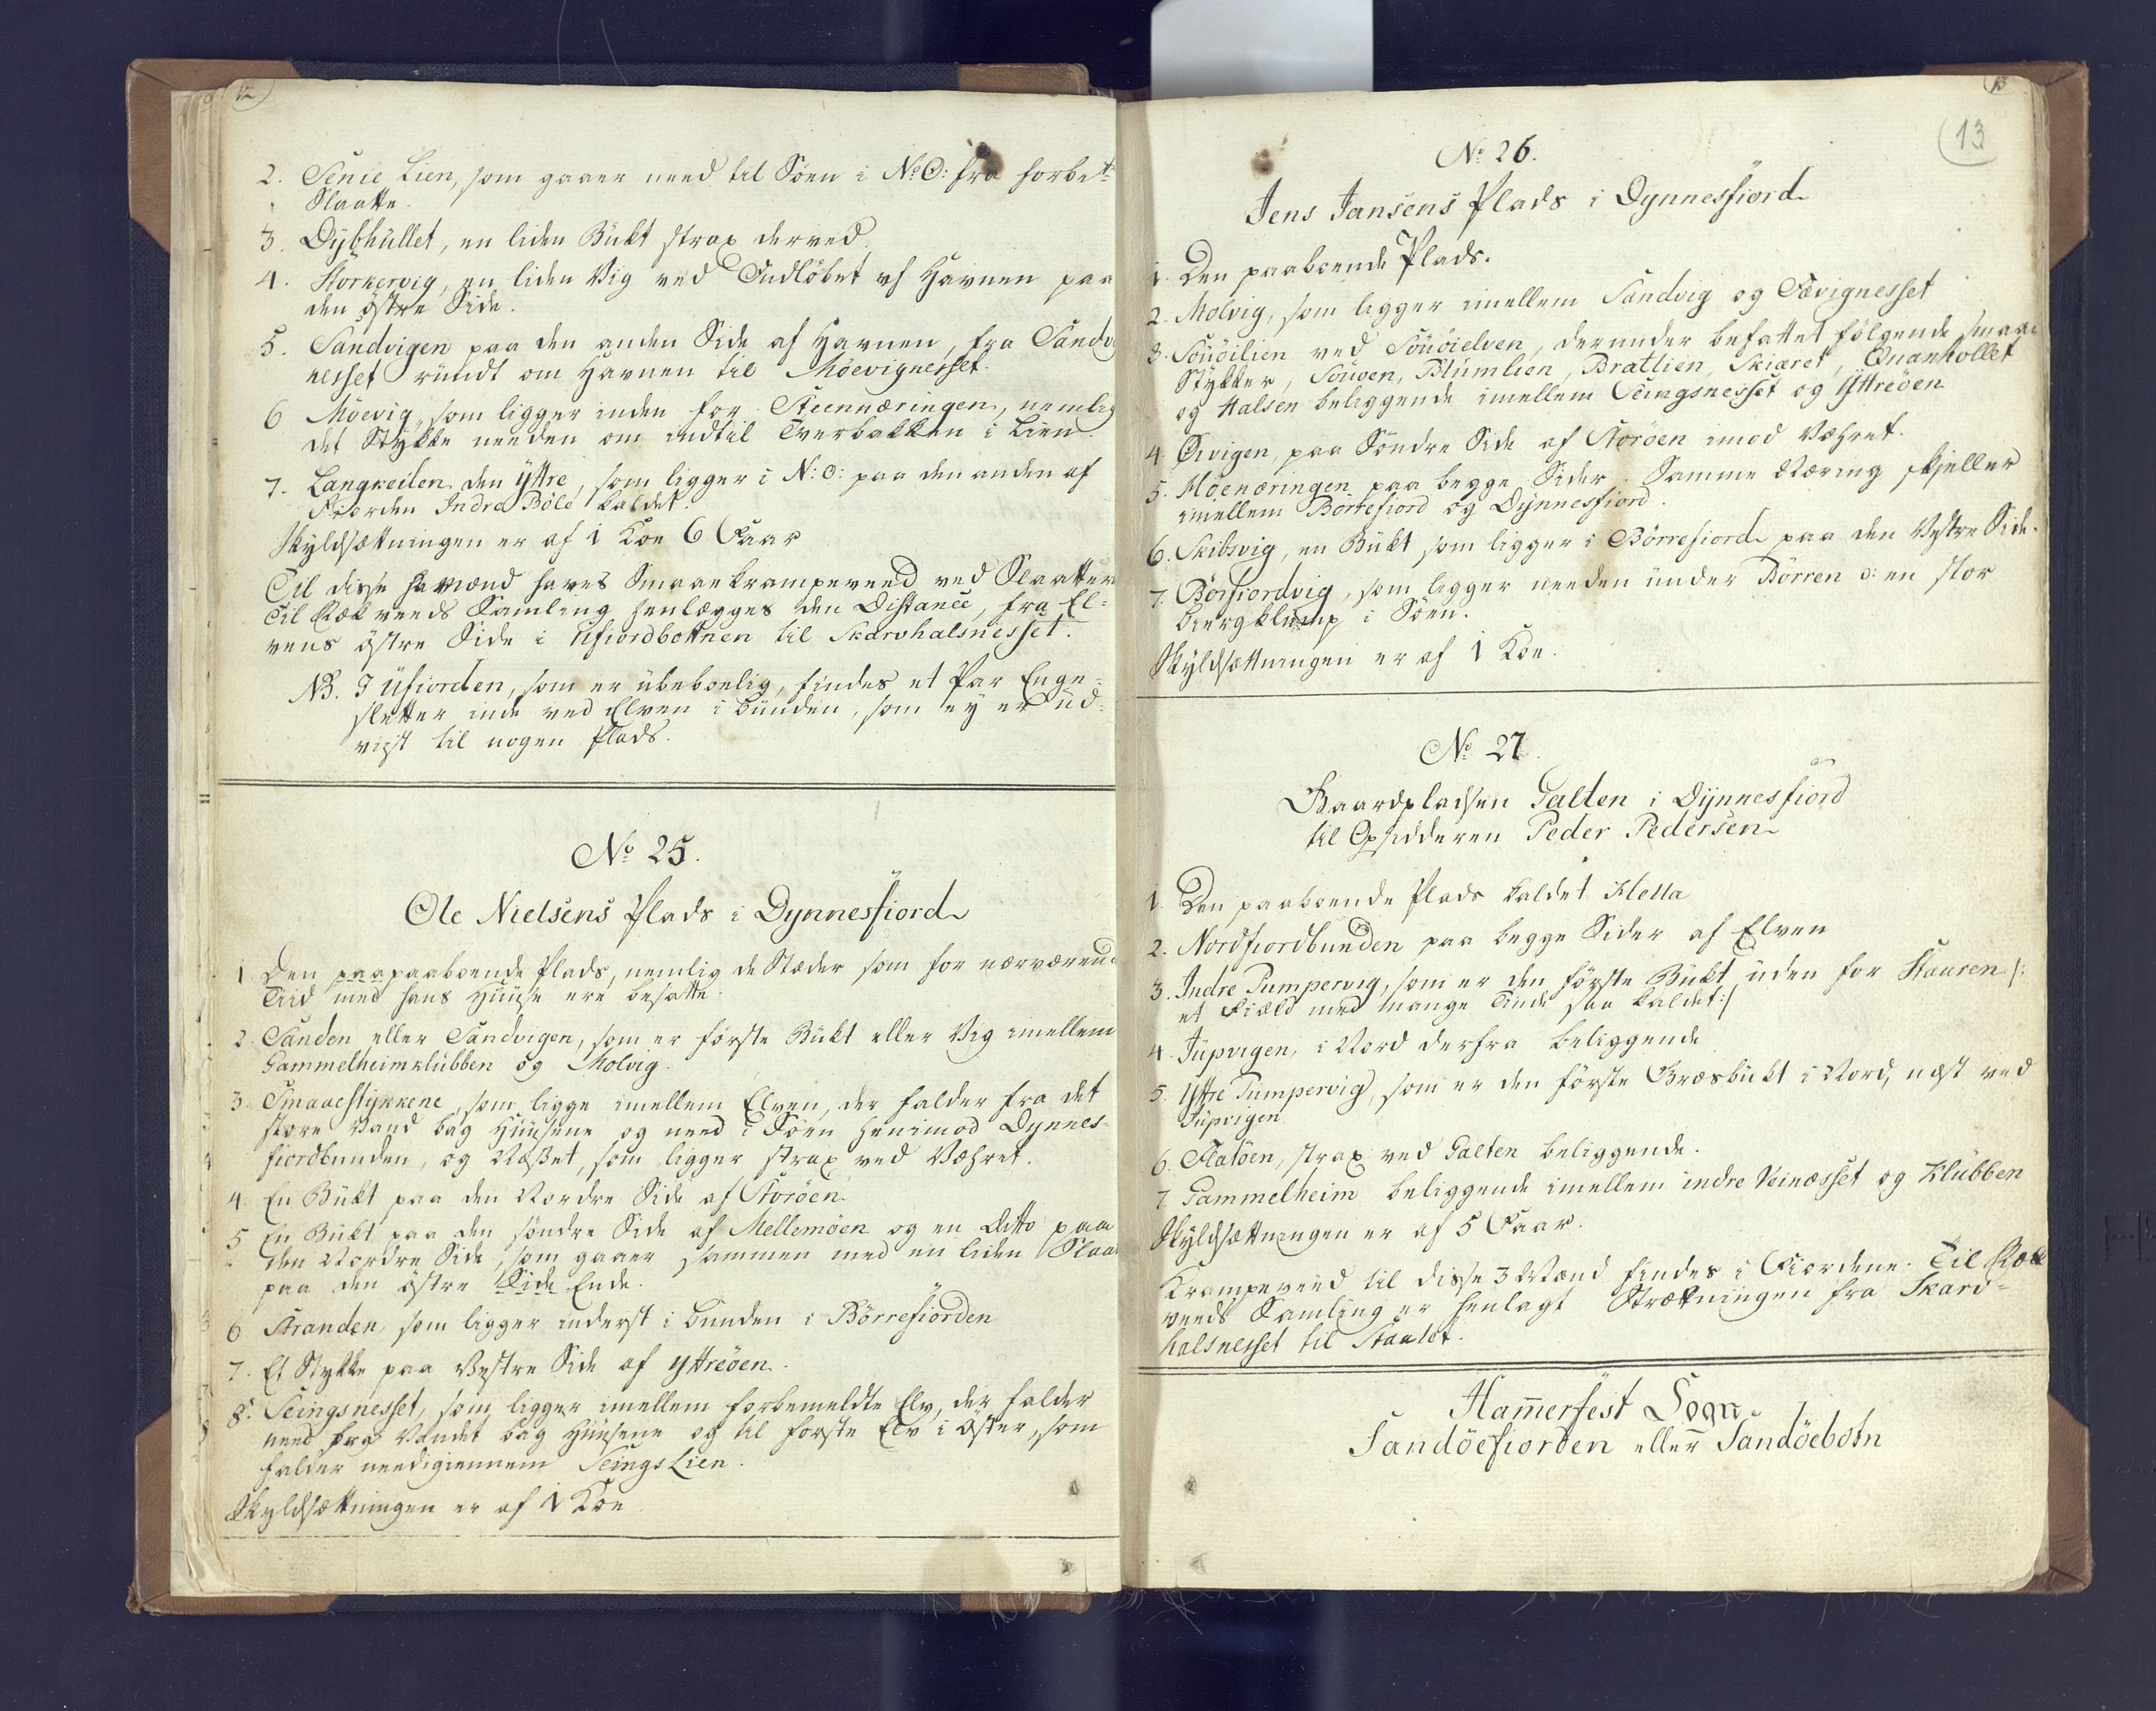 12
2. Senie Lien, som gaaer need til Söen i N.O: fra forbete
Slaatte.
3. Dÿbhüllet, en liden Bükt strax derved.
4. Storkervig, en liden Vig ved Indlöbet af Havnen paa
den östre Side.
5. Sandvigen paa den anden Side af Havnen, fra Sandv
nesset ründt om Havnen til Möevignesset.
6 Möevig, som ligger inden for Steennæringen, nemlig
det Stÿkke needen om indtil Tverbakken i Lien.
7. Langkeilen den ÿttre, som ligger i N:O: paa den anden af
Fiorden Indre Böle kaldet.
Skyldsætningen er af 1 Koe 6 Faar
Til disse Mænd haves Smaae krampeveed ved Slaatter
Til Rækveeds Samling henlægges den Distance, fra El-
vens östre Side i Ufiordbottnen til Skarvhalsnesset.
NB. I Ufiorden, som er übeboelig, findes et Par Enge-
sletter inde ved Elven i bunden, som eÿ er üd-
viist til nogen Plads.
No 25.
Ole Nielsens Plads i Dynnesfiord
1. Den paapaaboende Plads, nemlig de Stæder som for nærværend
Tiid med hans Hüüse ere besatte.
2. Sanden eller Sandvigen, som er förste Bükt eller Vig imellem
Gammelheimklübben og Molvig.
3. Smaaestÿkkene, som ligge imellem Elven, der falder fra det
store Vand bag Hüüsene og need i Söen henimod Dynnes-
fiordbunden, og Næsset, som ligger strax ved Væhret.
4. En Bükt paa den Nordre Side af Storöen.
5 En Bükt paa den söndre Side af Mellemöen og en Ditto paa
den Nordre Side, som gaaer sammen med en liden Slaat
paa den östre Side Ende.
6 Stranden, som ligger inderst i bunden i Börrefiorden
7. Et Stykke paa Vestre Side af yttreöen.
8. Seingsnesset, som ligger imellem forbemeldte Elv, der falder
need fra Vandet bag Hüüsene og til forste Elv i Öster, som
falder needigiennem Seings Lien.
Skyldsætningen er af 1 Koe
13
13
No 26.
Jens Jansens Plads i Dynnesfiord
1. Den paaboende Plads.
2. Molvig, som ligger imellem Sandvig og Sævignesset
3. Souöilien ved Souöielven, derunder befattet fölgende smaae
Stÿkker, Souöen, Blümlien, Bratlien, Skiæret, Quanhollet
og Halsen beliggende imellem Seingsnesset og Yttreöen
4. Qvigen, paa Söndre Side af Storöen imod Væhret.
5. Möenæringen paa begge Sider. Samme Næring skjeller
imellem Börrefiord og Dÿnnesfiord.
6. Skibsvig, en Bükt som ligger i Börrefiord paa den Vestre Side.
7. Börfiordvig, som ligger needen ünder Börren o: en stor
biergklump i Söen.
Skyldsætningen er af 1 Koe.
No 27.
Gaardpladsen Galten i Dÿnnesfiord
til Opsidderen Peder Pedersen
1. Den paaboende Plads kaldet Hella
2. Nordfiordbunden paa begge Sider af Elven
3. Indre Pumpervig, som er den förste Bükt üden for Stauren /:
et Field med mange Tinde saa kaldet :/
4. Jupvigen, i Nord derfra beliggende
5. Yttre Pumpervig, som er den förste Græsbükt i Nord, næst ved
Jupvigen
6. Flatöen, strax ved Galten beliggende.
7 Gammelheim beliggende imellem indre Veinæsset og Klübben
Skyldsætningen er af 5 Faar.
Krampeveed til disse 3 Mænd findes i Fiordene. Til Ræk
veeds Samling er henlagt Strækningen fra Skarv-
halsnesset til Staalet.
Ham̄erfest Sogn
Sandöefiorden eller Sandöebotn